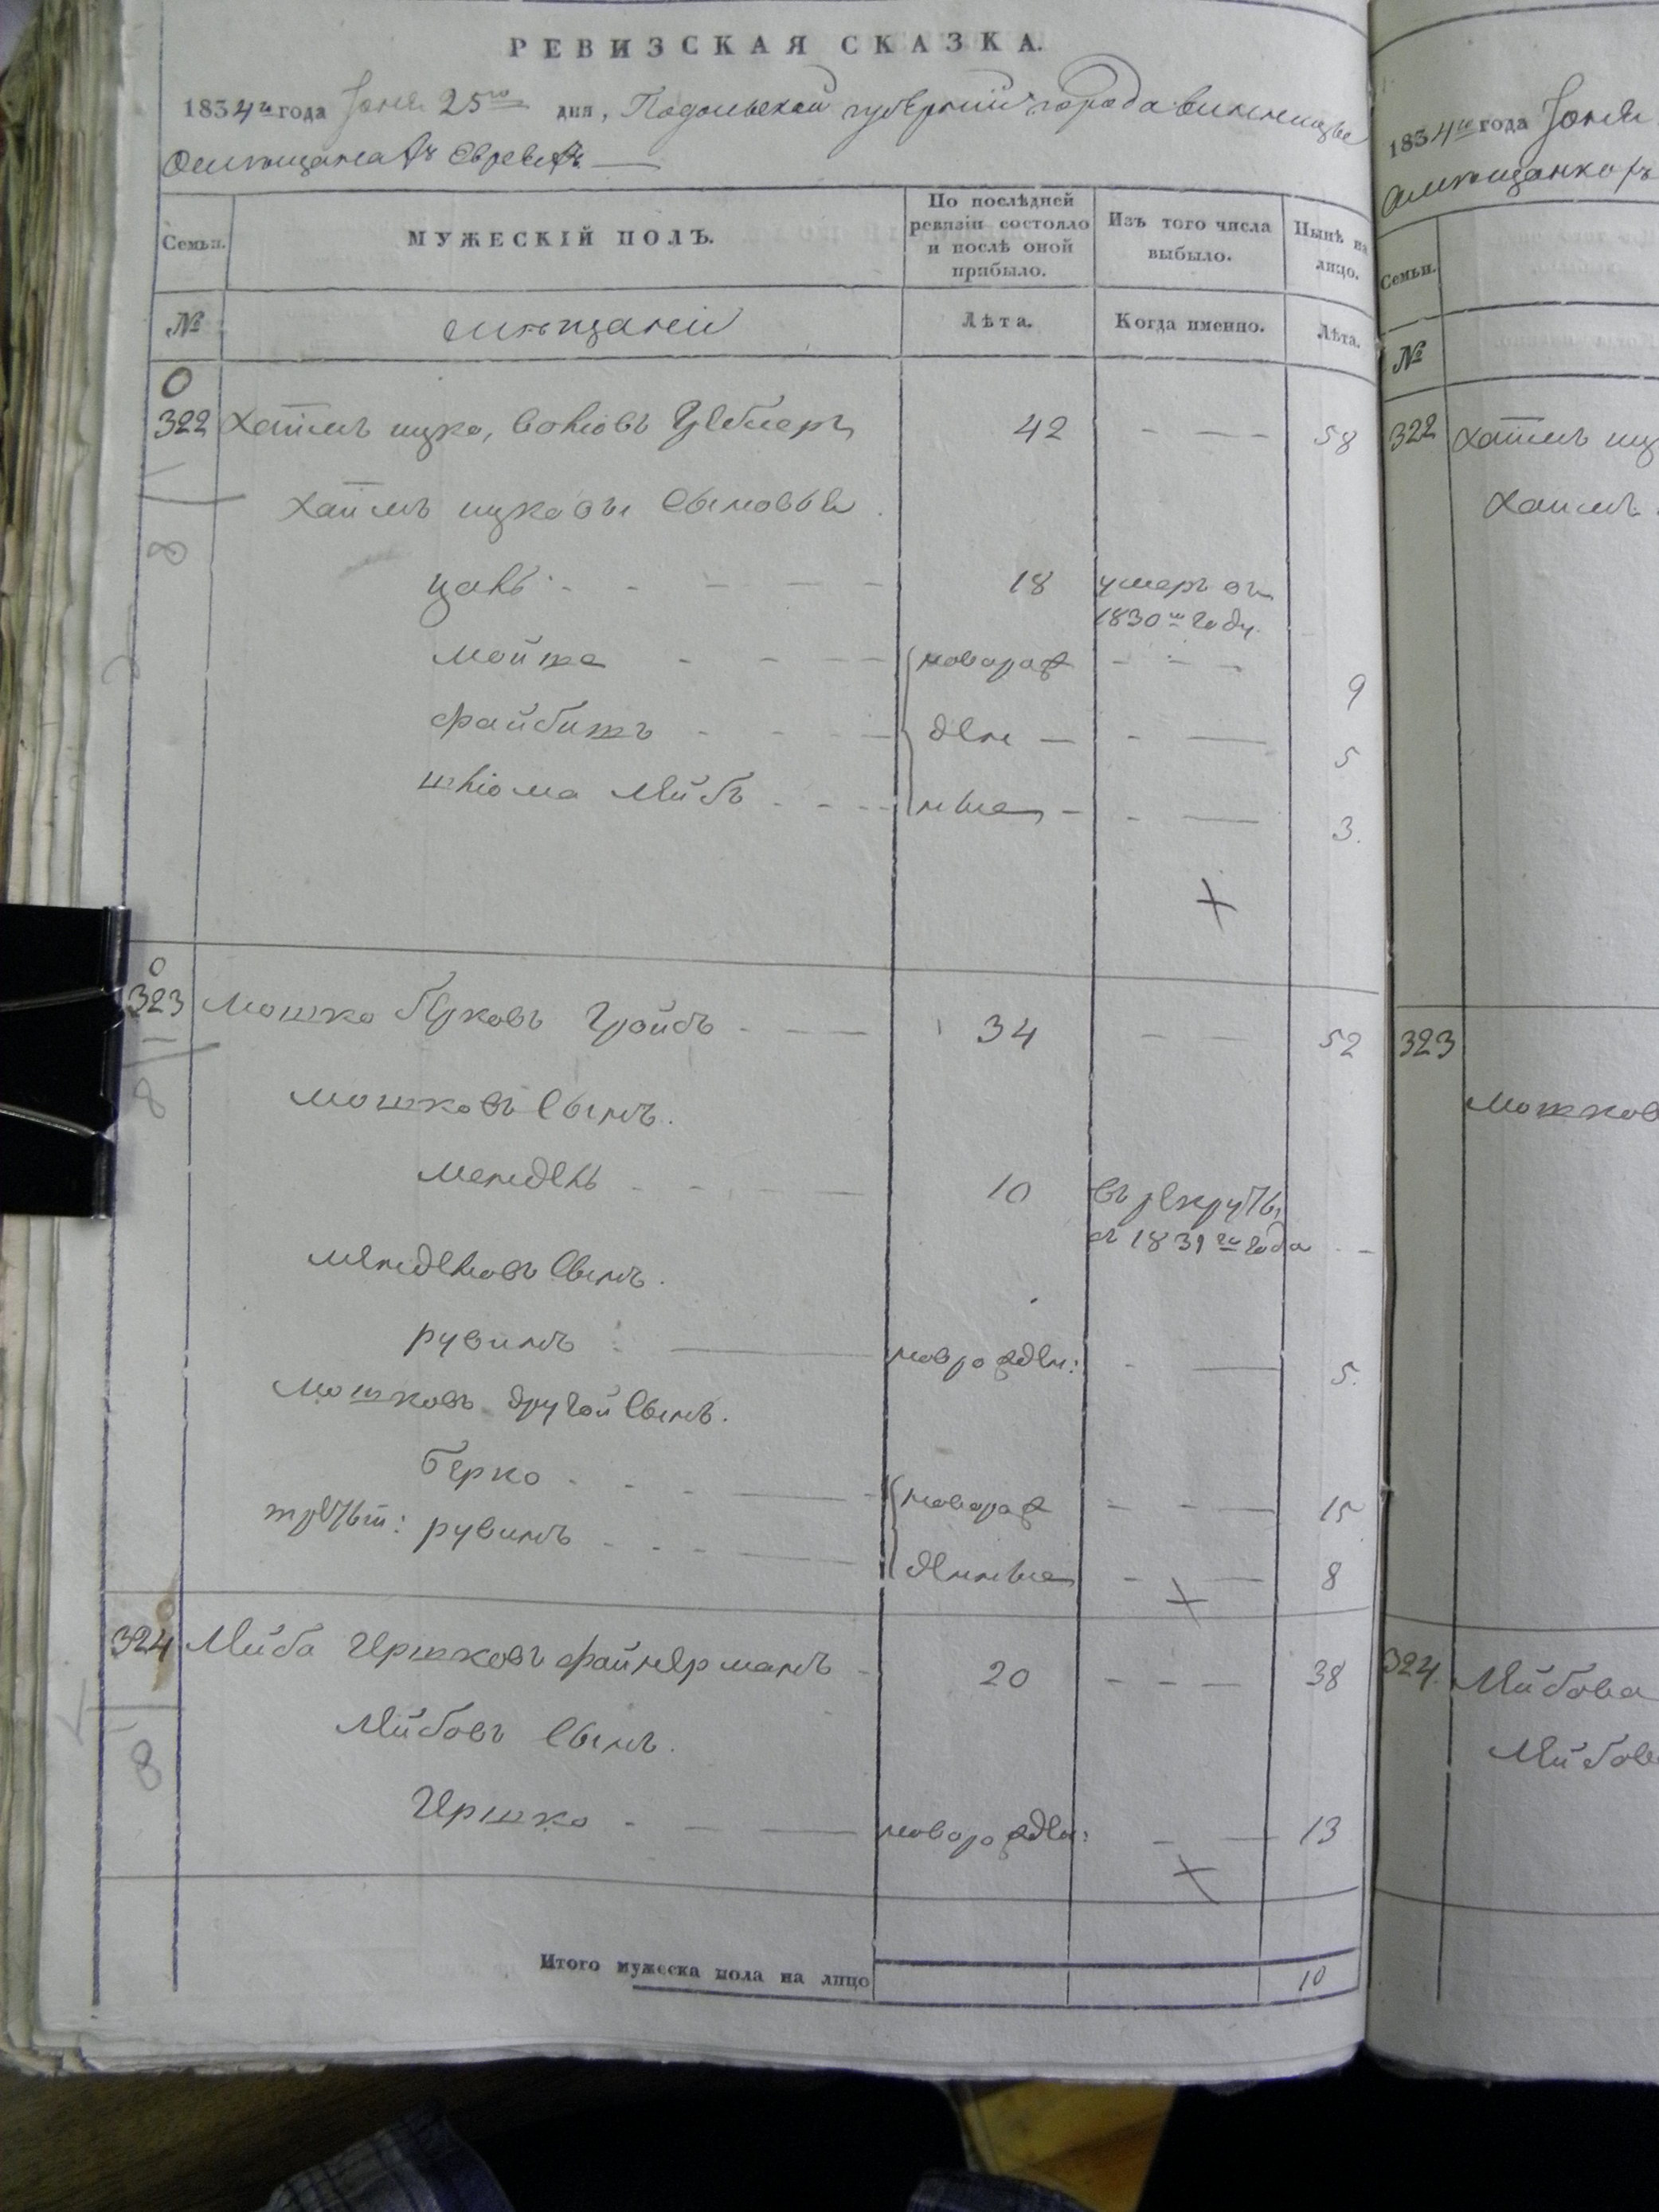 РЕВИЗСКАЯ СКАЗКА.
1834го года Іюня 25го дня, Подольской губерніи города винницы
О мѣщанахъ Евреяхъ
Семьи. МУЖЕСКІЙ ПОЛЪ. По послѣдней ревизіи состояло и послѣ оной прибыло. Изъ того числа выбыло. Нынѣ на лицо.
№ мѣщане Лѣта. Когда именно. Лѣта.
322 Хаимъ ицко, 42 58
Хаимъ ицковы сыновья.
18 умеръ въ
1830м году.
Мошко новорож 9
файбишъ ден 5
Лейбъ ные 3.
323 Мошко берковъ Гройсъ 34 52
мошковъ сынъ.
мендель 10 въ рекруты
съ 1831го года
менделевъ сынъ.
рувинъ новорожден: 5.
мошковъ другой сынъ.
берко новорож 15
третій: рувинъ денные 8
324 Лейба Гершковъ файнерманъ 20 38
Лейбовъ сынъ.
Гершко новорожден: 13
Итого мужеска пола на лицо 10
1834го года Іюня
О мѣщанкахъ
Семьи.
№
322 хаимъ иц
Хаимъ
323
мошков
324 Лейбова
Лейбов